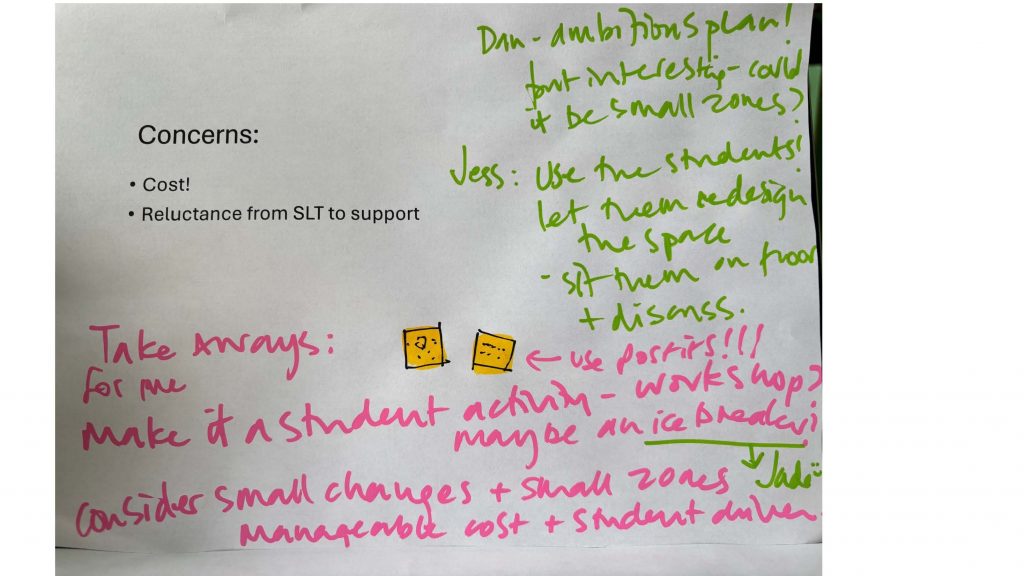 Concerns:
• Cost!
• Reluctance from SLT to support
Dan - ambitions plan!
but interesting - could
it be small zones?
Jess: Use the students!
let them redesign
the space
- sit them on floor
+ discuss.
Take Aways:
for me
← use postits!!!
Make it a student activity - workshop?
maybe an ice breaker?
Jade
Consider small changes + small zones
manageable cost + student driven.